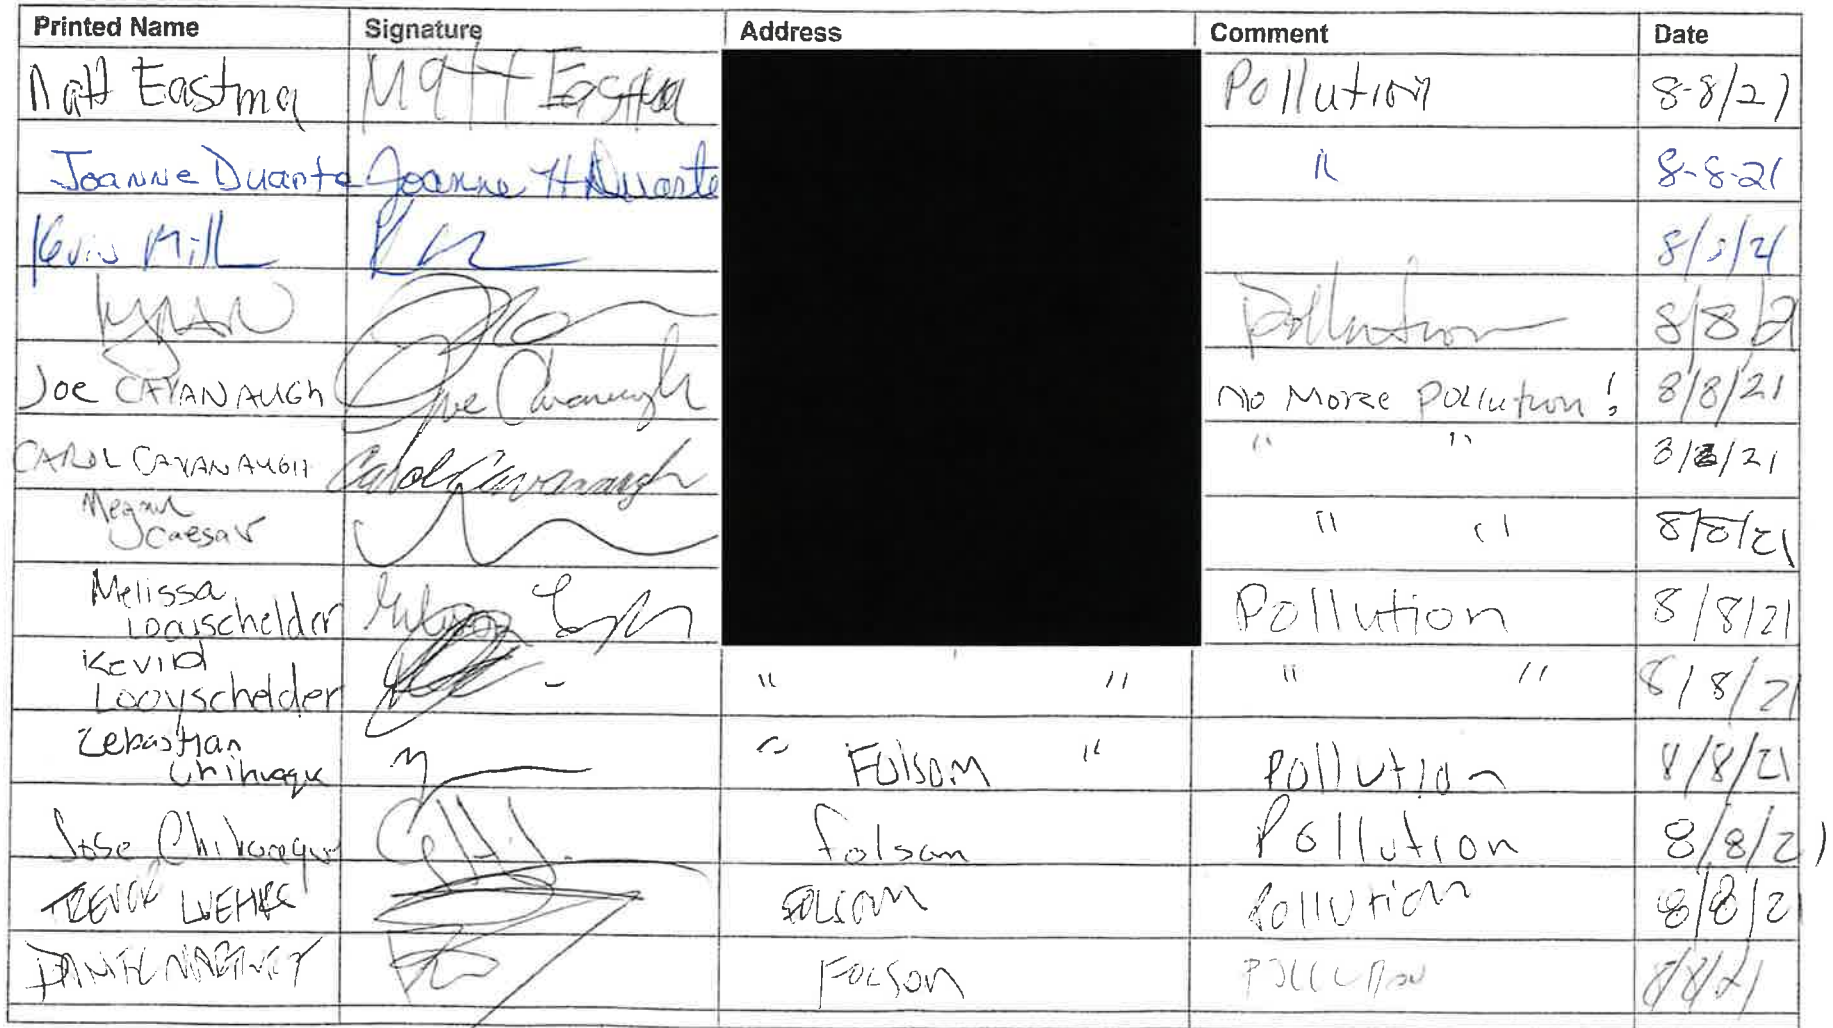 Printed Name Signature Address Comment Date
Matt Eastma Matt Eastma Pollution 8-8/21
Joanne Duarte Joanne H Duarte " 8-8-21
Kevin Mill 8/8/21
Pollution 8/8/21
Joe CAVANAUGh Joe Cavanaugh No More Pollution! 8/8/21
CAROL CAVANAUGH Carol Cavanaugh " " 8/8/21
Megan
Caesar " " 8/8/21
Melissa
Looyschelder Pollution 8/8/21
Kevin
Looyschelder " " " " 8/8/21
Zebastian
" Folsom " Pollution 8/8/21
Jose Folsom Pollution 8/8/21
TREVOR Folsom Pollution 8/8/21
DANIEL FOLSOM Pollution 8/8/21